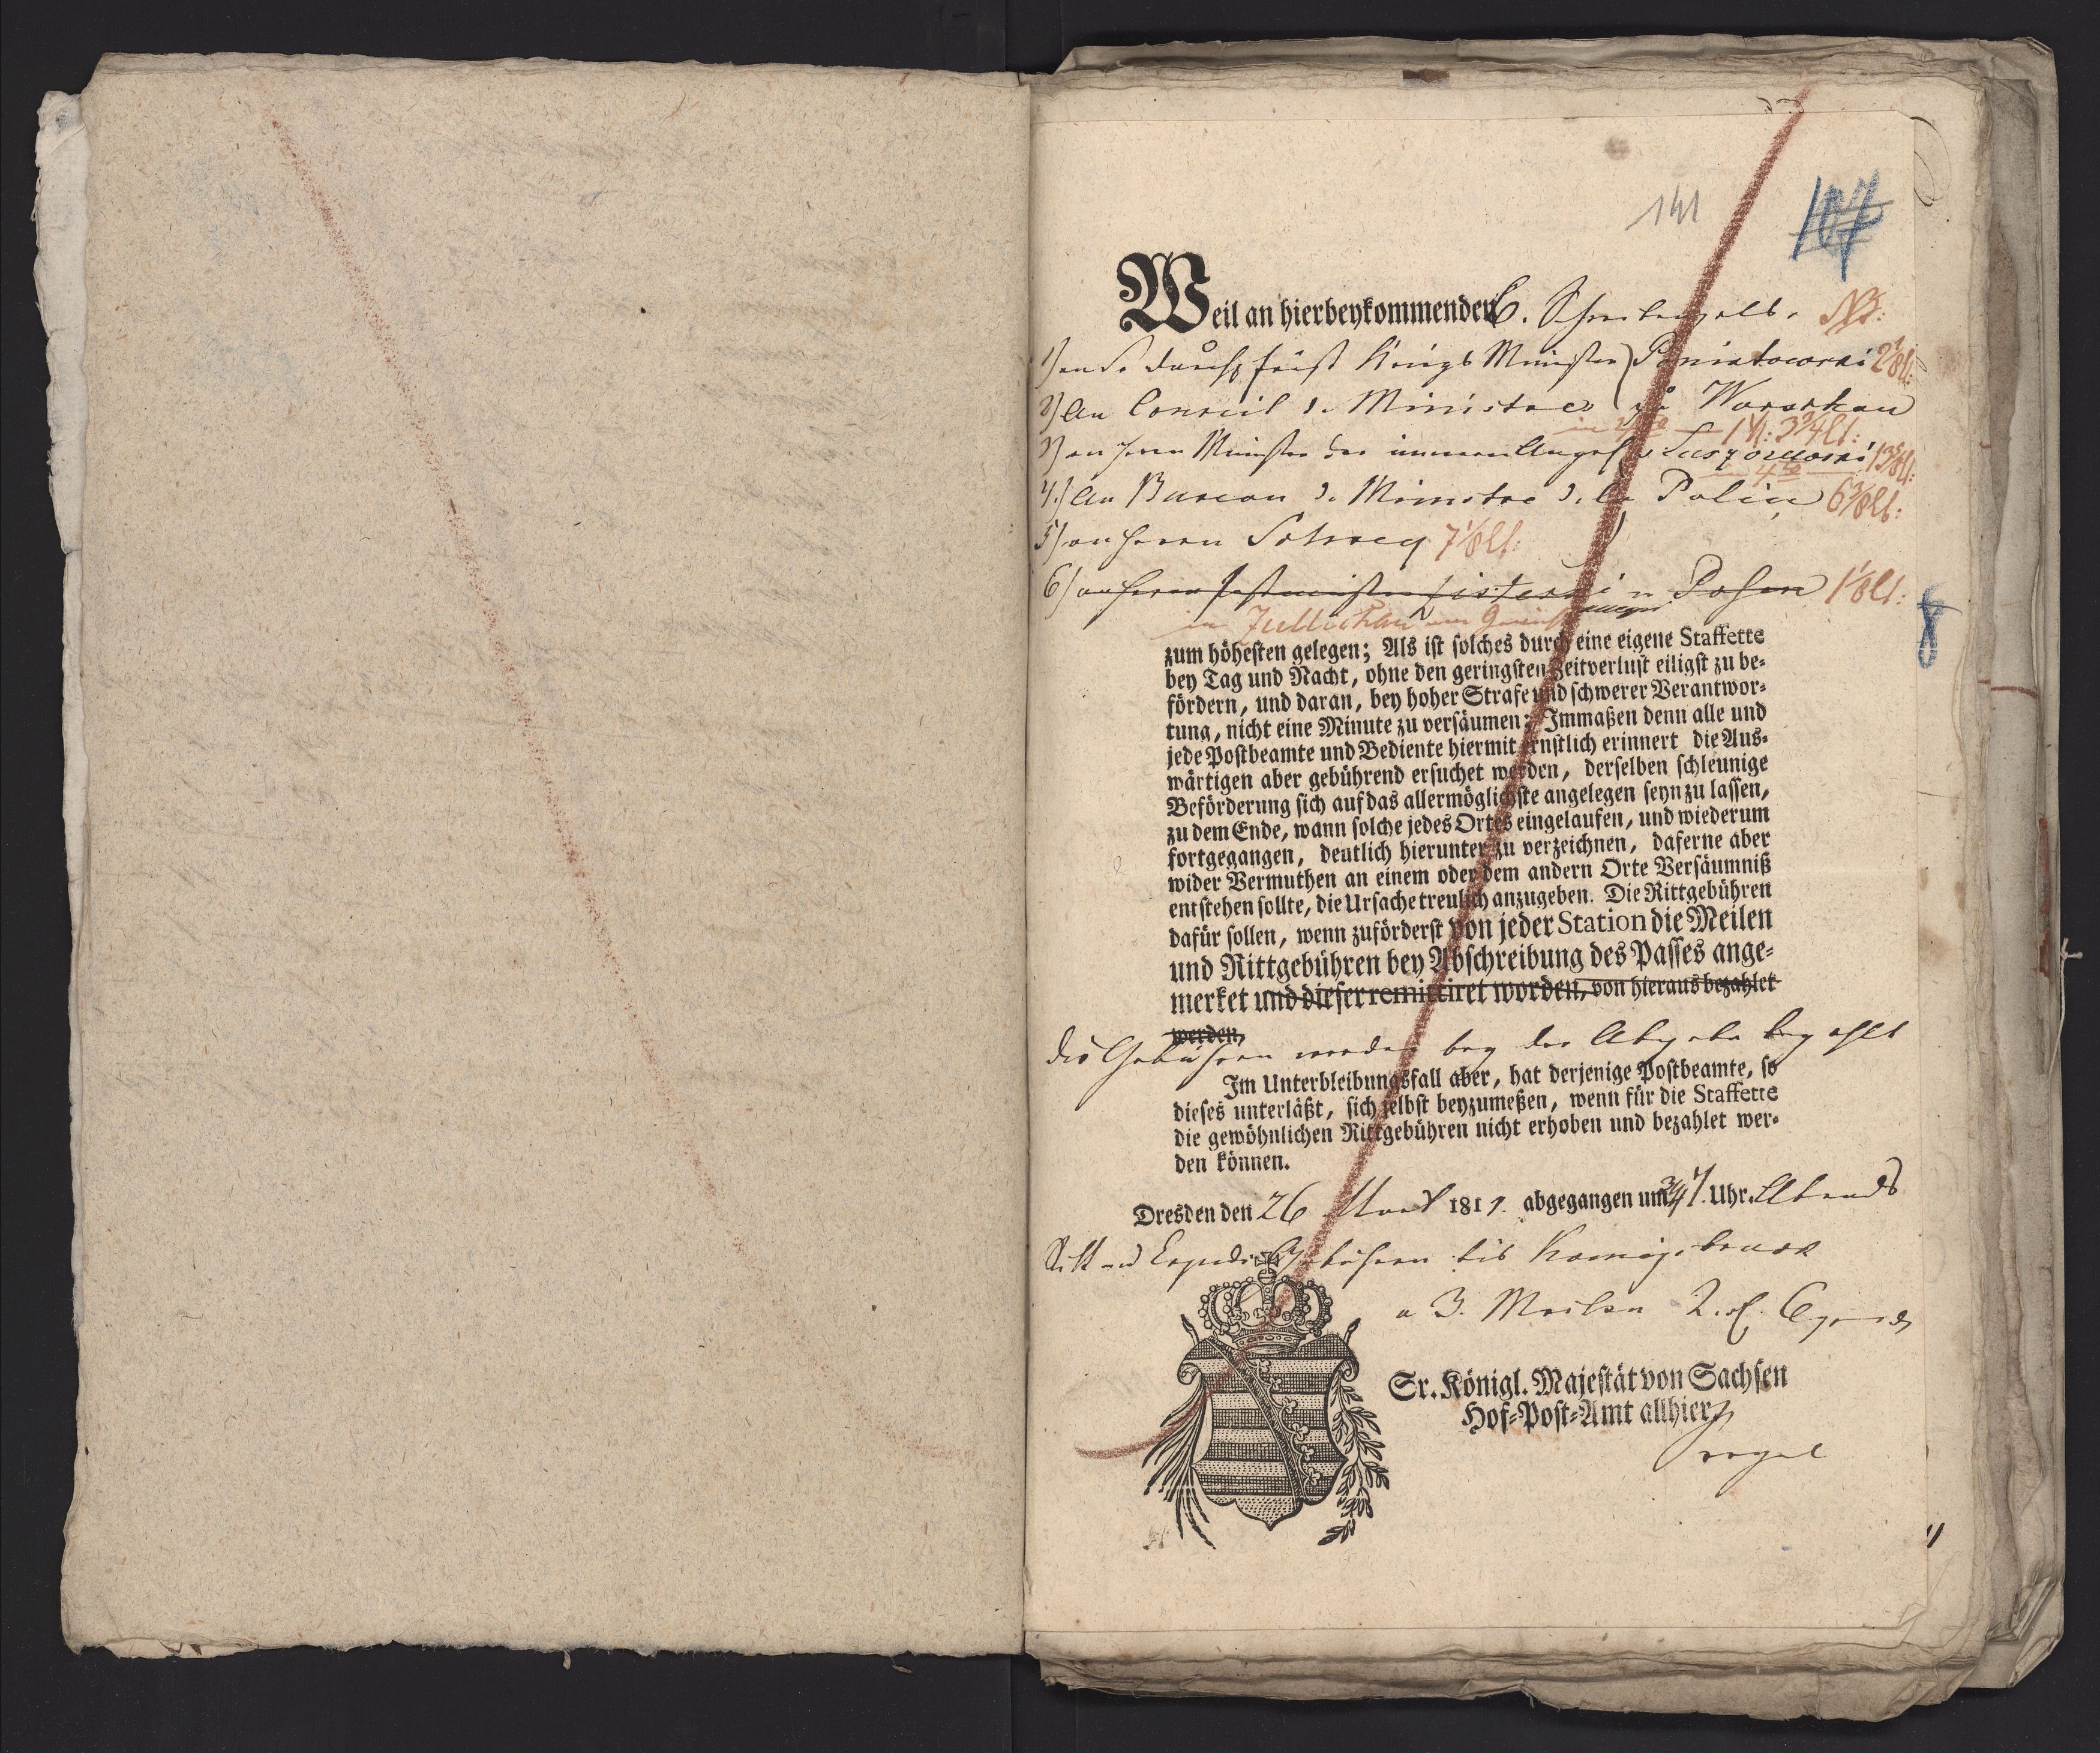 141
107
Weil an hierbeykommenden 6.
1) Poniatowski
2) Au Conseil d. Ministres zu Warschau
3) an Herrn Minister der innern
4.) Au Bureau d. Ministre d. la Police
5) an Herrn
6) an Herrn Posen
in Züllichau
zum höhesten gelegen; Als ist solches durch eine eigene Staffette
bey Tag und Nacht, ohne den geringsten Zeitverlust eiligst zu be-
fördern, und daran, bey hoher Strafe und schwerer Verantwor-
tung, nicht eine Minute zu versäumen; Immaßen denn alle und
jede Postbeamte und Bediente hiermit ernstlich erinnert die Aus-
wärtigen aber gebührend ersuchet werden, derselben schleunige
Beförderung sich auf das allermöglichste angelegen seyn zu lassen,
zu dem Ende, wann solche jedes Ortes eingelaufen, und wiederum
fortgegangen, deutlich hierunter zu verzeichnen, daferne aber
wider Vermuthen an einem oder dem andern Orte Versäumniß
entstehen sollte, die Ursache treulich anzugeben. Die Rittgebühren
dafür sollen, wenn zuförderst von jeder Station die Meilen
und Rittgebühren bey Abschreibung des Passes ange-
merket und dieser remittiret worden, von hieraus bezahlet
werden,
die Gebühren werden bey der Abgabe bezahlt
Im Unterbleibungsfall aber, hat derjenige Postbeamte, so
dieses unterläßt, sich selbst beyzumeßen, wenn für die Staffette
die gewöhnlichen Rittgebühren nicht erhoben und bezahlet wer-
den können.
8
Dresden den 26 1811. abgegangen um 3/4 7. Uhr. Abends
Ritt und Gebühren bis Koenigsbruck
a 3. Meilen 2.
Sr. Königl. Majestät von Sachsen
Hof-Post-Amt allhier